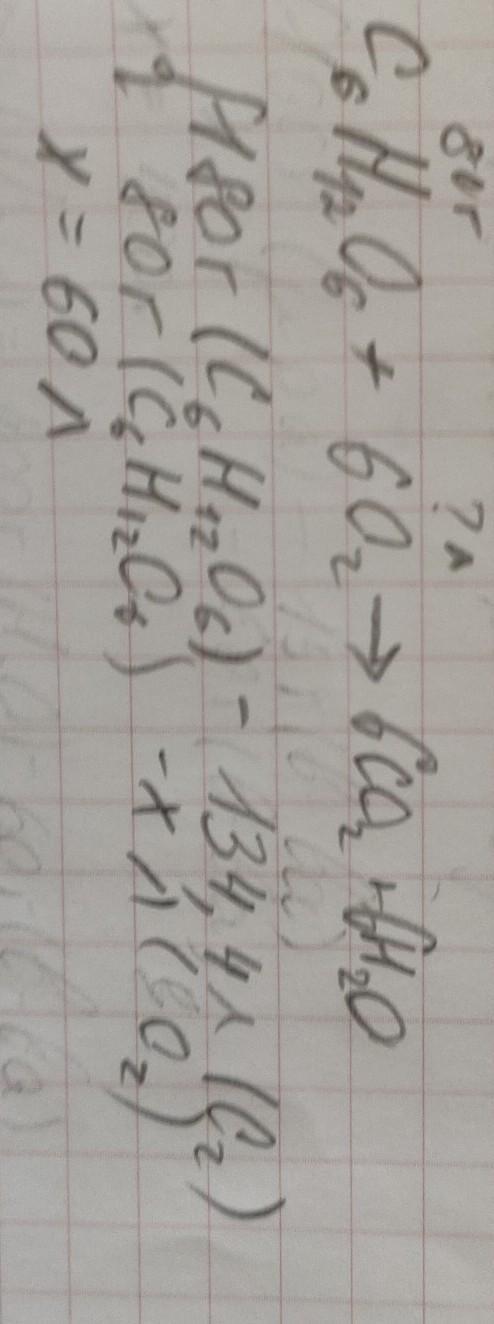 80г ?л
C₆H₁₂O₆ + 6O₂ → 6CO₂ + 6H₂O
180г (C₆H₁₂O₆) - 134,4л (O₂)
80г (C₆H₁₂O₆) - x л (O₂)
x = 60 л